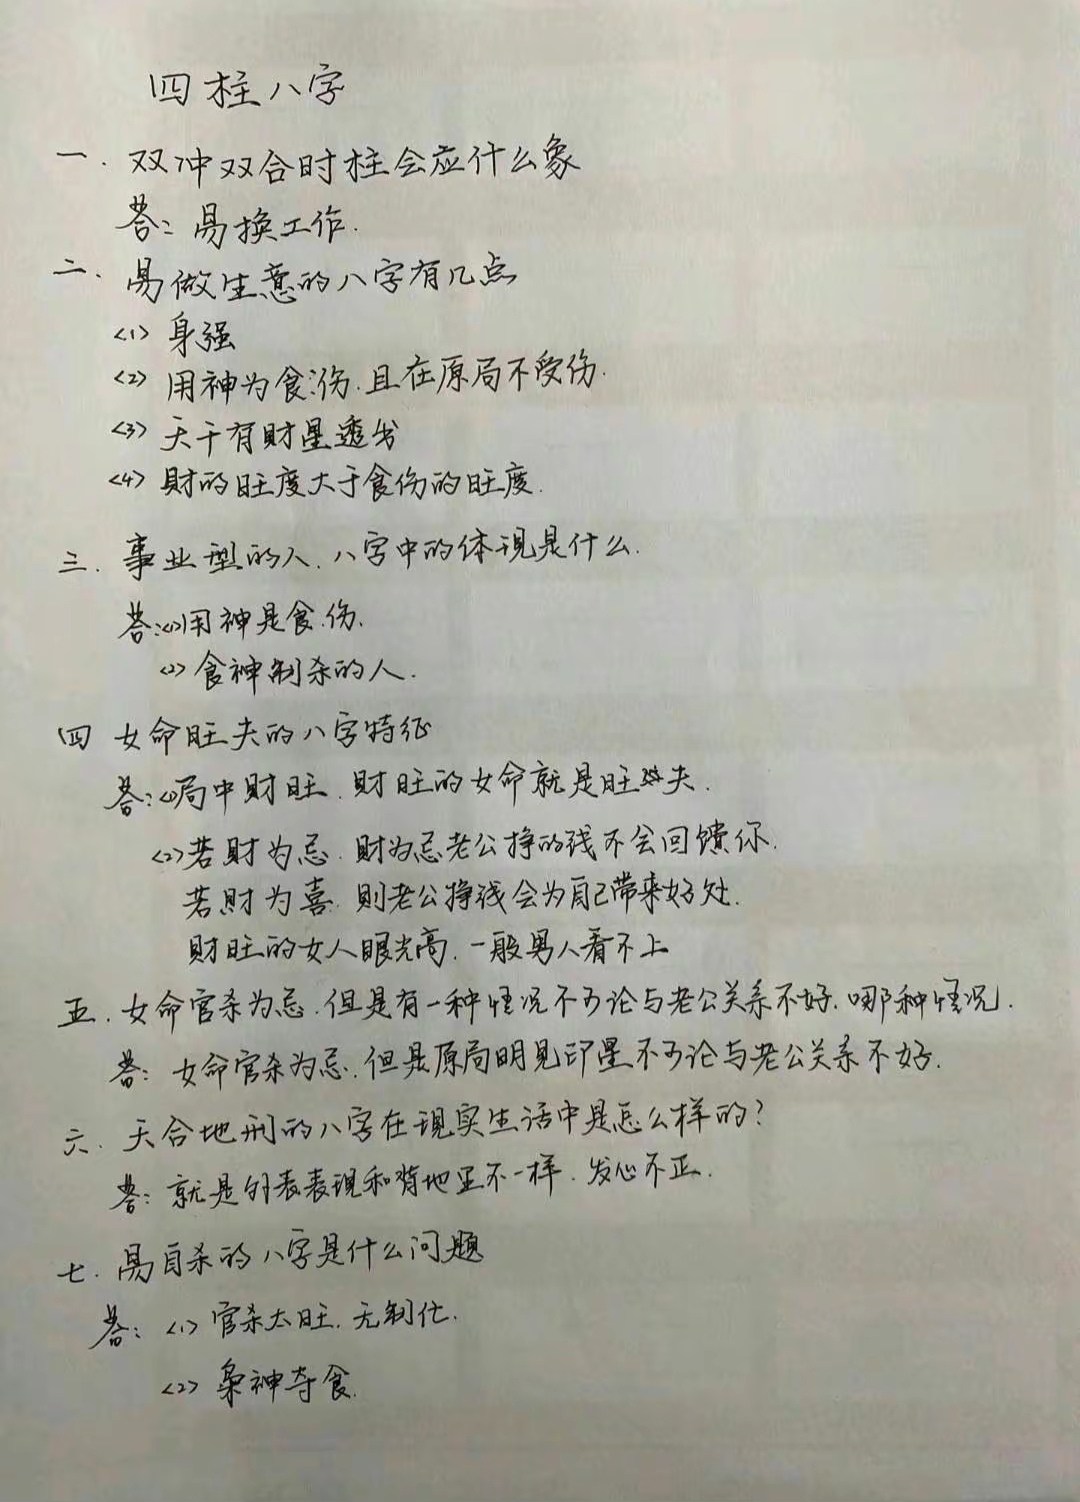 四柱八字
一. 双冲双合时柱会应什么象
答: 易换工作.
二. 易做生意的八字有几点
<1> 身强
<2> 用神为食.伤.且在原局不受伤.
<3> 天干有財星透出
<4> 財的旺度大于食伤的旺度.
三. 事业型的人.八字中的体现是什么.
答:<1>用神是食.伤.
<2> 食神制杀的人.
四 女命旺夫的八字特征
答:<1>局中財旺.財旺的女命就是旺夫.
<2>若財为忌.財为忌老公挣的钱不会回馈你.
若財为喜.則老公挣钱会为自己带来好处.
財旺的女人眼光高.一般男人看不上
五. 女命官杀为忌.但是有一种情况不可论与老公关系不好.哪种情况.
答: 女命官杀为忌.但是原局明见印星不可论与老公关系不好.
六. 天合地刑的八字在现实生活中是怎么样的?
答: 就是外表表现和背地里不一样.发心不正.
七. 易自杀的八字是什么问题
答: <1> 官杀太旺.无制化.
<2> 枭神夺食.